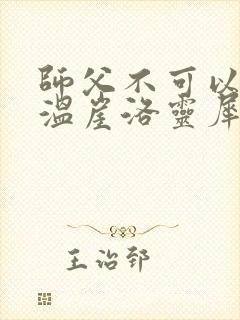 師父不可以
溫崖洛靈犀
王治郅